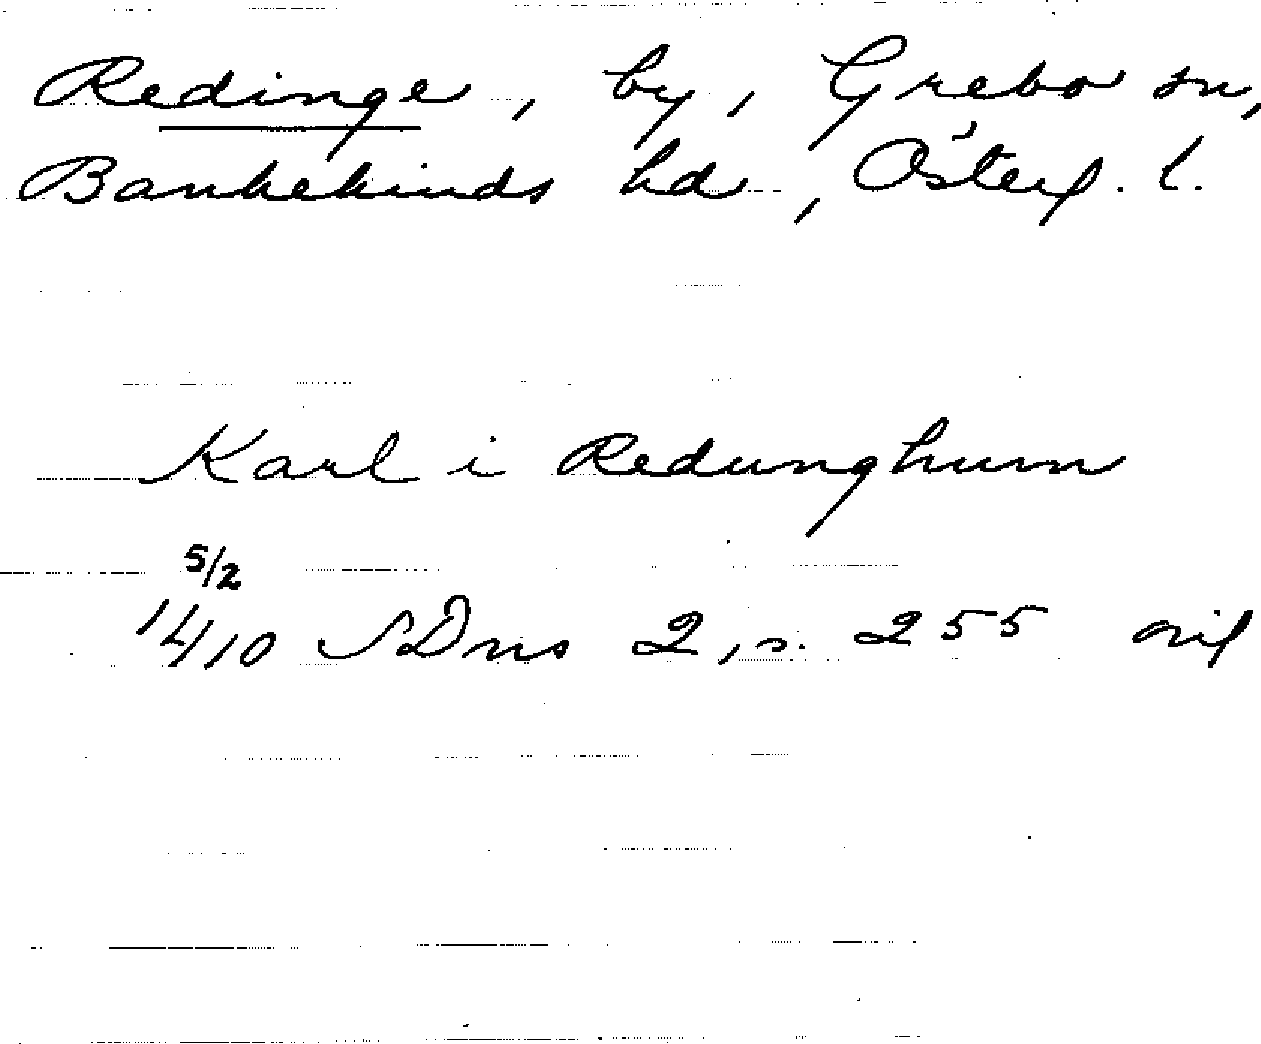 Redinge, by, Grebo sn,
Bankekinds hd, Österg. l.
Karl i Redunghum
5/2
14/10 SDns 2, s. 255 orig